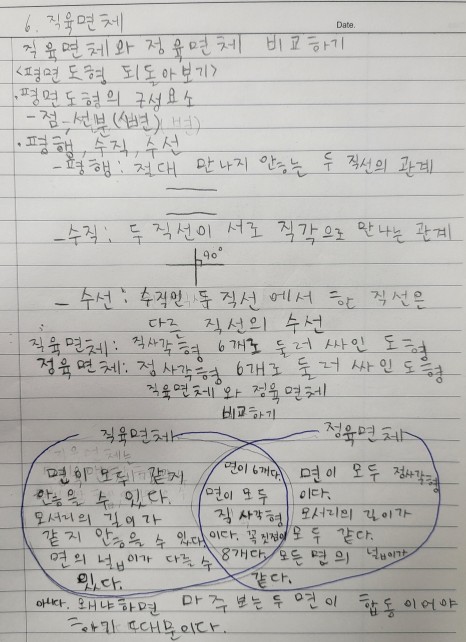 6. 직육면체
Date.
직육면체와 정육면체 비교하기
<평면도형 되돌아보기>
·평면도형의 구성요소
-점,선분(변)
·평행, 수직, 수선
-평행: 절대 만나지 안능는 두 직선의 관계
-수직: 두 직선이 서로 직각으로 만나는 관계
90°
- 수선: 수직인 두 직선에서 한 직선은
다른 직선의 수선
직육면체: 직사각형 6개로 둘러 싸인 도형
정육면체: 정사각형 6개로 둘러 싸인 도형
직육면체와 정육면체
비교하기
직육면체
정육면체
면이 모두 같지
안능을 수 있다.
모서리의 길이가
같지 안능을 수 있다.
면의 넓이가 다를 수
있다.
면이 6개다.
면이 모두
직사각형
이다. 꼭짓점이
8개다.
면이 모두 정사각형
이다.
모서리의 길이가
모두 같다.
모든 면의 넓이가
같다.
아니다. 왜냐하면 마주보는 두 면이 합동이어야
하기 때문이다.